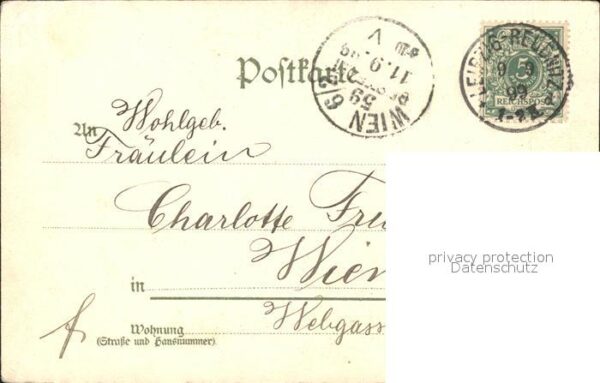 Postkarte
WIEN 6/2
59
11. 9. 99
V
LEIPZIG-REUDNITZ
9 9
99
1-2 N.
5
REICHSPOST
An Wohlgeb.
Fräulein
Charlotte
Wien
in
Webgass
Wohnung
(Straße und Hausnummer)
privacy protection
Datenschutz